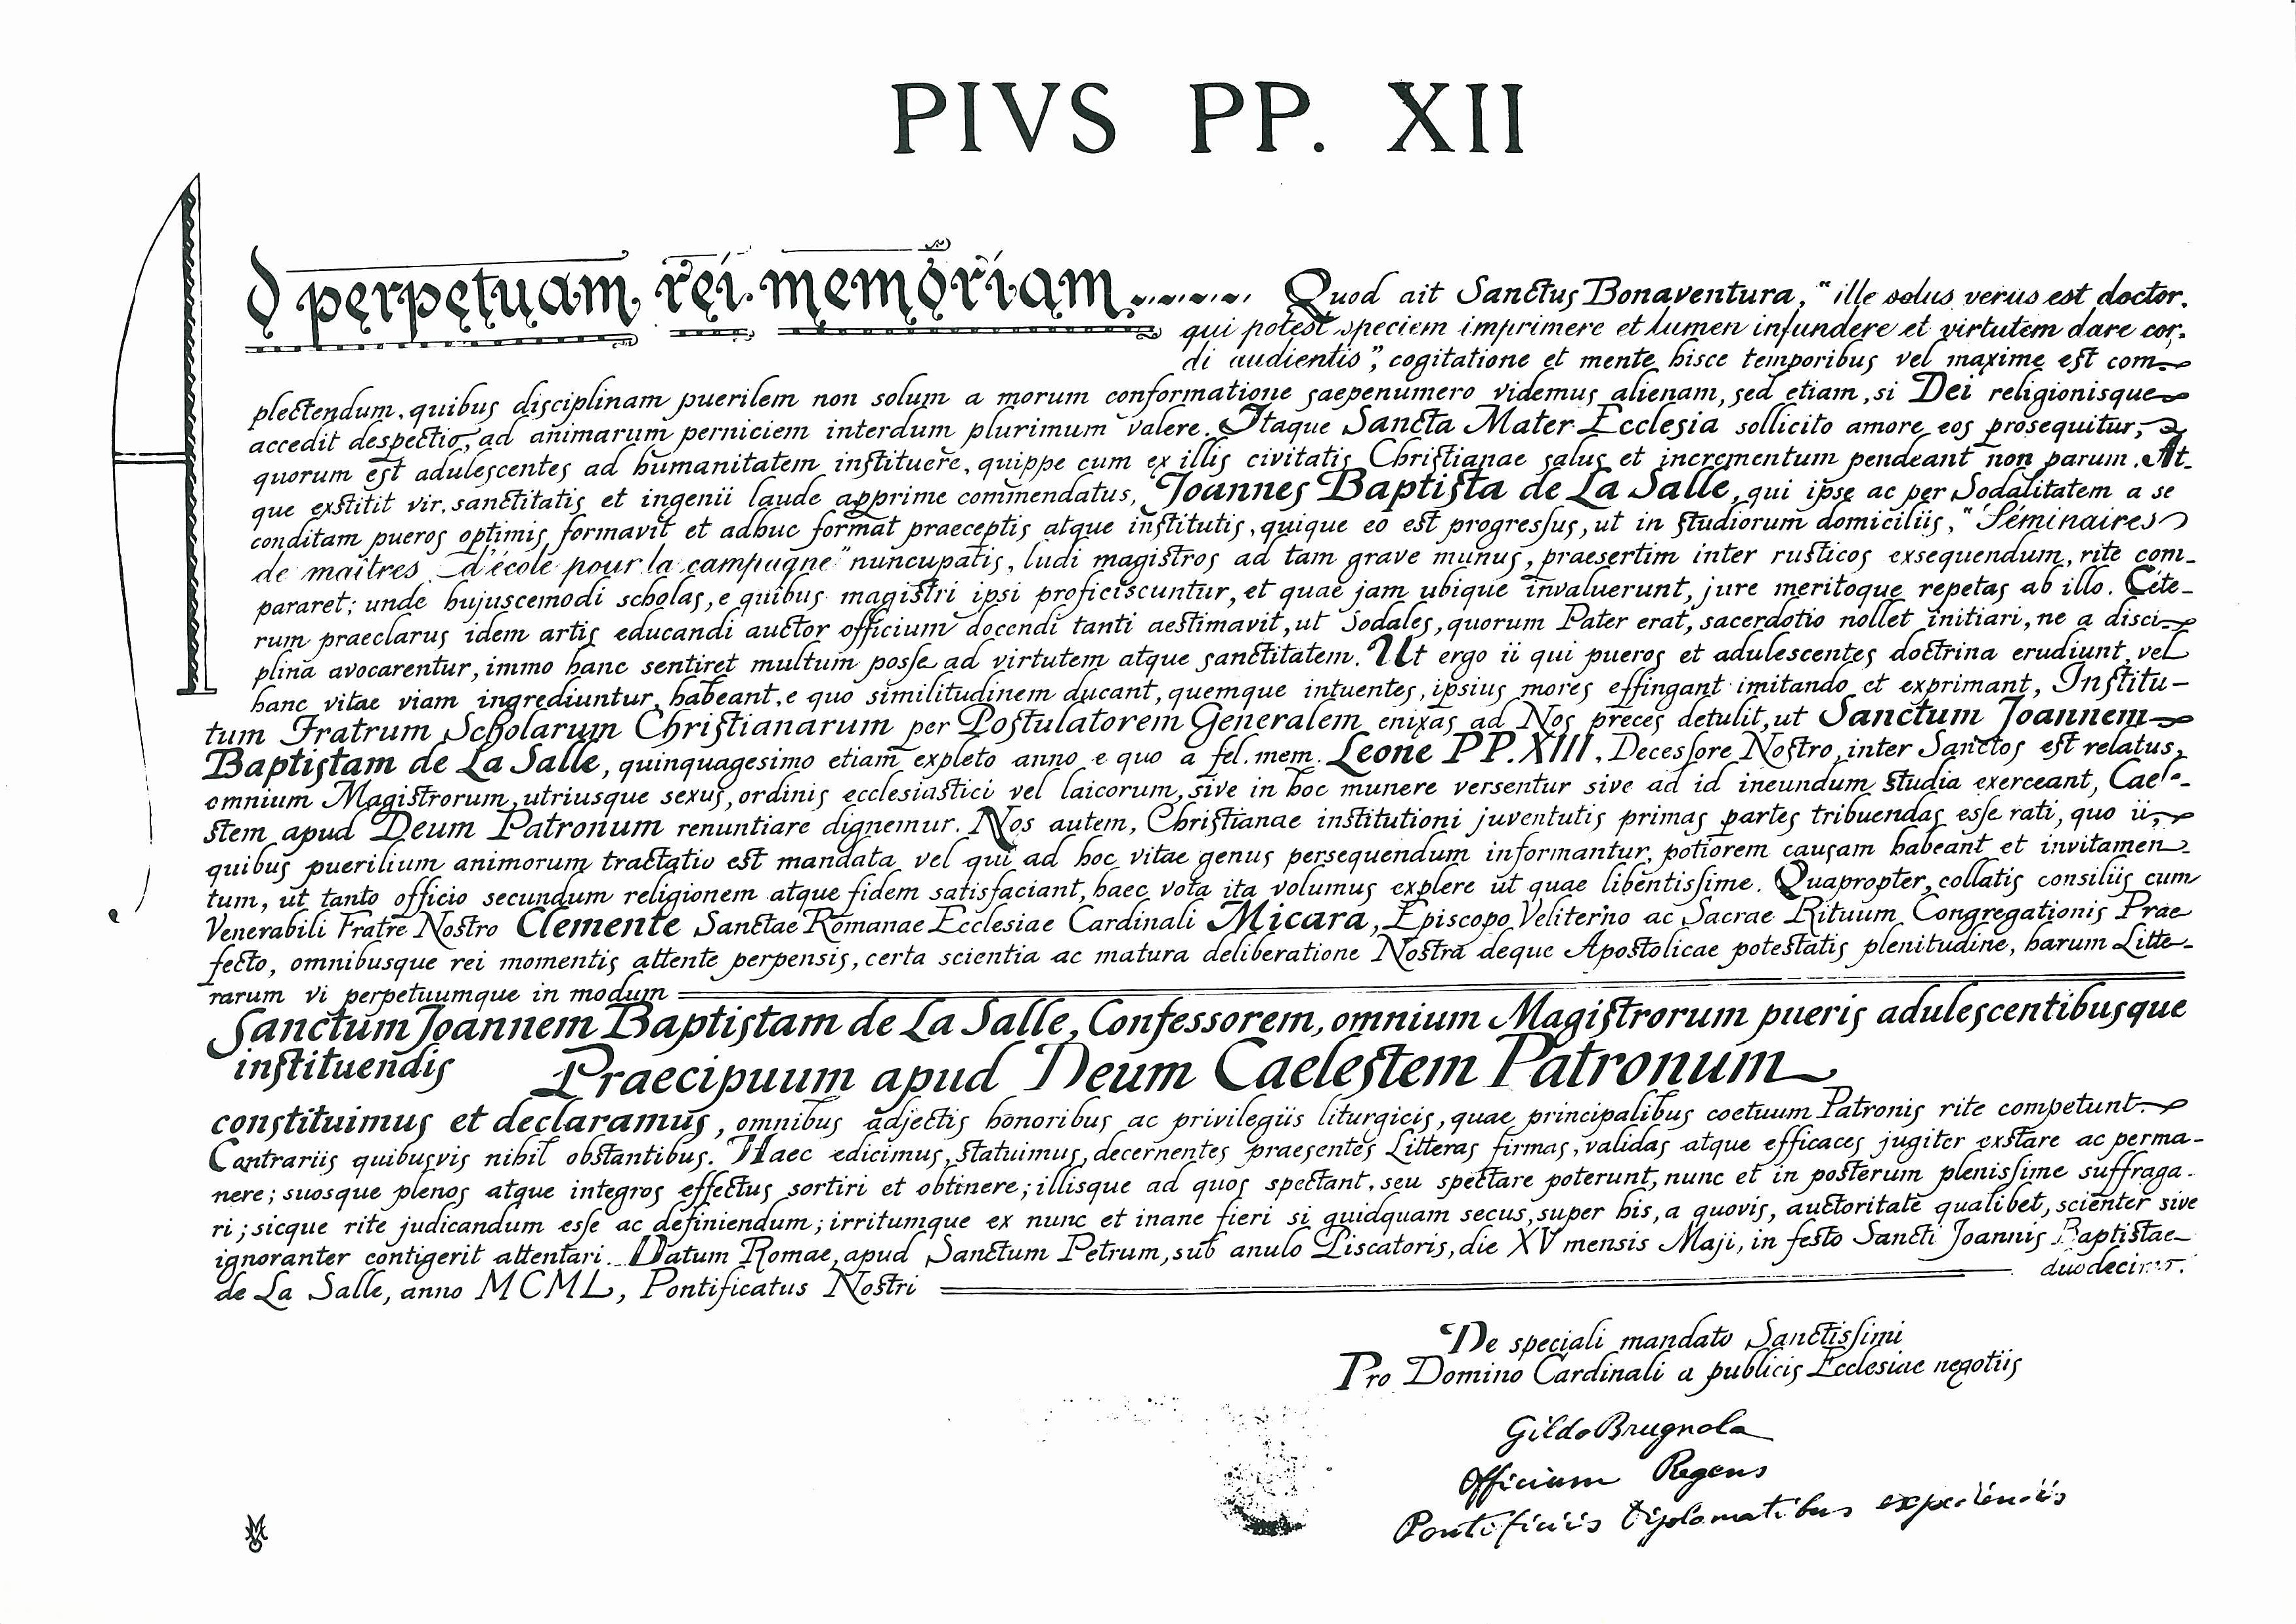 PIVS PP. XII
Ad perpetuam rei memoriam. Quod ait Sanctus Bonaventura, "ille solus verus est doctor.
qui potest speciem imprimere et lumen infundere et virtutem dare cor-
di audientis", cogitatione et mente hisce temporibus vel maxime est com-
plectendum, quibus disciplinam puerilem non solum a morum conformatione saepenumero videmus alienam, sed etiam, si Dei religionisque
accedit despectio, ad animarum perniciem interdum plurimum valere. Itaque Sancta Mater Ecclesia sollicito amore eos prosequitur,
quorum est adulescentes ad humanitatem instituere, quippe cum ex illis civitatis Christianae salus et incrementum pendeant non parum. At-
que exstitit vir, sanctitatis et ingenii laude apprime commendatus, Joannes Baptista de La Salle, qui ipse ac per Sodalitatem a se
conditam pueros optimis formavit et adhuc format praeceptis atque institutis, quique eo est progressus, ut in studiorum domiciliis, "Séminaires
de maîtres d'école pour la campagne" nuncupatis, ludi magistros ad tam grave munus, praesertim inter rusticos exsequendum, rite com-
pararet; unde hujuscemodi scholas, e quibus magistri ipsi proficiscuntur, et quae jam ubique invaluerunt, jure meritoque repetas ab illo. Cete-
rum praeclarus idem artis educandi auctor officium docendi tanti aestimavit, ut Sodales, quorum Pater erat, sacerdotio nollet initiari, ne a disci-
plina avocarentur, immo hanc sentiret multum posse ad virtutem atque sanctitatem. Ut ergo ii qui pueros et adulescentes doctrina erudiunt, vel
hanc vitae viam ingrediuntur, habeant, e quo similitudinem ducant, quemque intuentes, ipsius mores effingant imitando et exprimant, Institu-
tum Fratrum Scholarum Christianarum per Postulatorem Generalem enixas ad Nos preces detulit, ut Sanctum Joannem
Baptistam de La Salle, quinquagesimo etiam expleto anno e quo a fel. mem. Leone PP. XIII, Decessore Nostro, inter Sanctos est relatus,
omnium Magistrorum, utriusque sexus, ordinis ecclesiastici vel laicorum, sive in hoc munere versentur sive ad id ineundum studia exerceant, Cael-
stem apud Deum Patronum renuntiare dignemur. Nos autem, Christianae institutioni juventutis primas partes tribuendas esse rati, quo ii,
quibus puerilium animorum tractatio est mandata vel qui ad hoc vitae genus persequendum informantur, potiorem causam habeant et invitamen-
tum, ut tanto officio secundum religionem atque fidem satisfaciant, haec vota ita volumus explere ut quae libentissime. Quapropter, collatis consiliis cum
Venerabili Fratre Nostro Clemente Sanctae Romanae Ecclesiae Cardinali Micara, Episcopo Veliterno ac Sacrae Rituum Congregationis Prae
fecto, omnibusque rei momentis attente perpensis, certa scientia ac matura deliberatione Nostra deque Apostolicae potestatis plenitudine, harum Litte-
rarum vi perpetuumque in modum
Sanctum Joannem Baptistam de La Salle, Confessorem, omnium Magistrorum pueris adulescentibusque
instituendis Praecipuum apud Deum Caelestem Patronum
constituimus et declaramus, omnibus adjectis honoribus ac privilegiis liturgicis, quae principalibus coetuum Patronis rite competunt.
Contrariis quibusvis nihil obstantibus. Haec edicimus, statuimus, decernentes praesentes Litteras firmas, validas atque efficaces jugiter exstare ac perma-
nere; suosque plenos atque integros effectus sortiri et obtinere; illisque ad quos spectant, seu spectare poterunt, nunc et in posterum plenissime suffraga-
ri; sicque rite judicandum esse ac definiendum; irritumque ex nunc et inane fieri si quidquam secus, super his, a quovis, auctoritate qualibet, scienter sive
ignoranter contigerit attentari. Datum Romae, apud Sanctum Petrum, sub anulo Piscatoris, die XV mensis Maji, in festo Sancti Joannis Baptistae
de La Salle, anno MCML, Pontificatus Nostri duodecimo.
De speciali mandato Sanctissimi
Pro Domino Cardinali a publicis Ecclesiae negotiis
Gildo Brugnola
Officium Regens
Pontificiis Diplomatibus expediendis